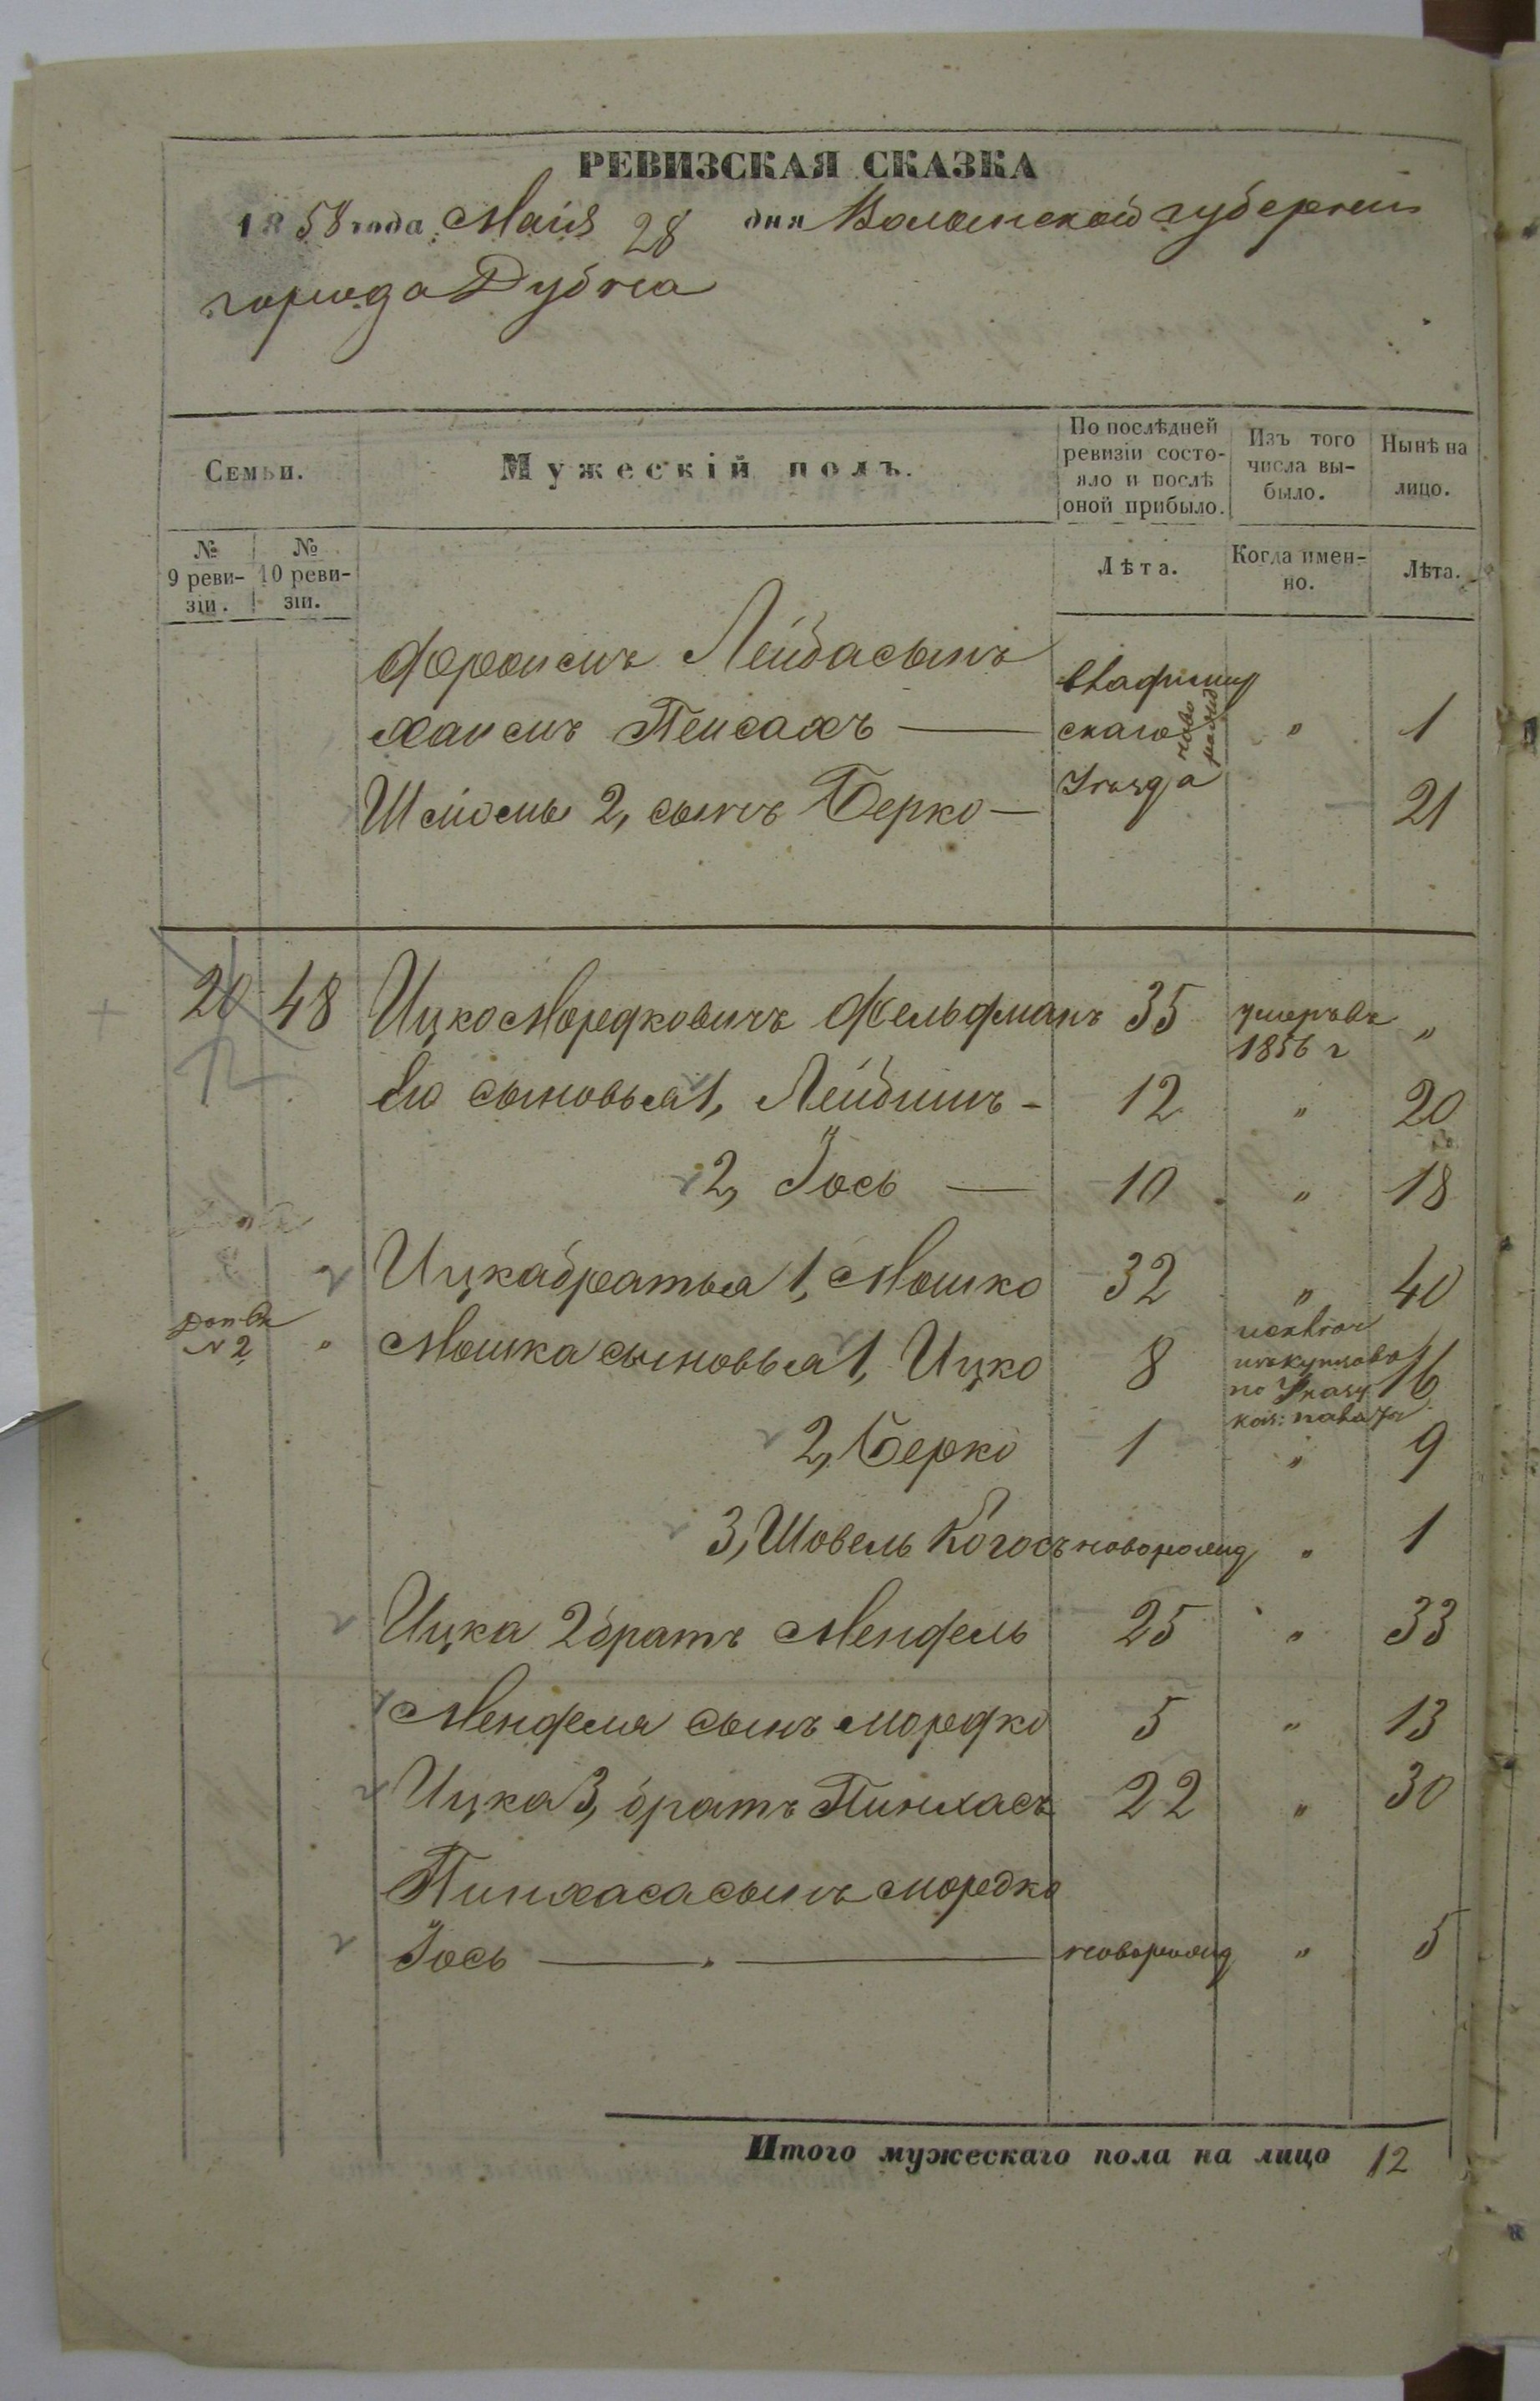 РЕВИЗСКАЯ СКАЗКА
1858 года Маія 28 дня Волынской губерніи
города Дубна
Семьи.
Мужескій полъ.
По послѣдней ревизіи состо-
яло и послѣ
оной прибыло.
Изъ того
числа вы-
было.
Нынѣ на
лицо.
№
9 реви-
зіи.
№
10 реви-
зіи.
Лѣта.
Когда имен-
но.
Лѣта.
Лейба сынъ
Хаимъ Пейсахъ — „ 1
2, сынъ Берко — 21
20 48 Ицко Мордковичъ Фельдманъ 35 умеръ въ 1856 г „
Его сыновья 1, Лейбишъ - 12 „ 20
2, Іось — 10 „ 18
Ицка братья 1, Мошко 32 „ 40
№ 2 „ Мошка сыновья 1, Ицко 8 16
по Указу
2, Берко 1 „ 9
3, Шовель новорожд „ 1
Ицка 2 братъ Мендель 25 „ 33
Менделя сынъ Мордко 5 „ 13
Ицка 3, братъ Пинхасъ 22 „ 30
Пинхаса сынъ Мордко
Іось — новорожд „ 5
Итого мужескаго пола на лицо 12